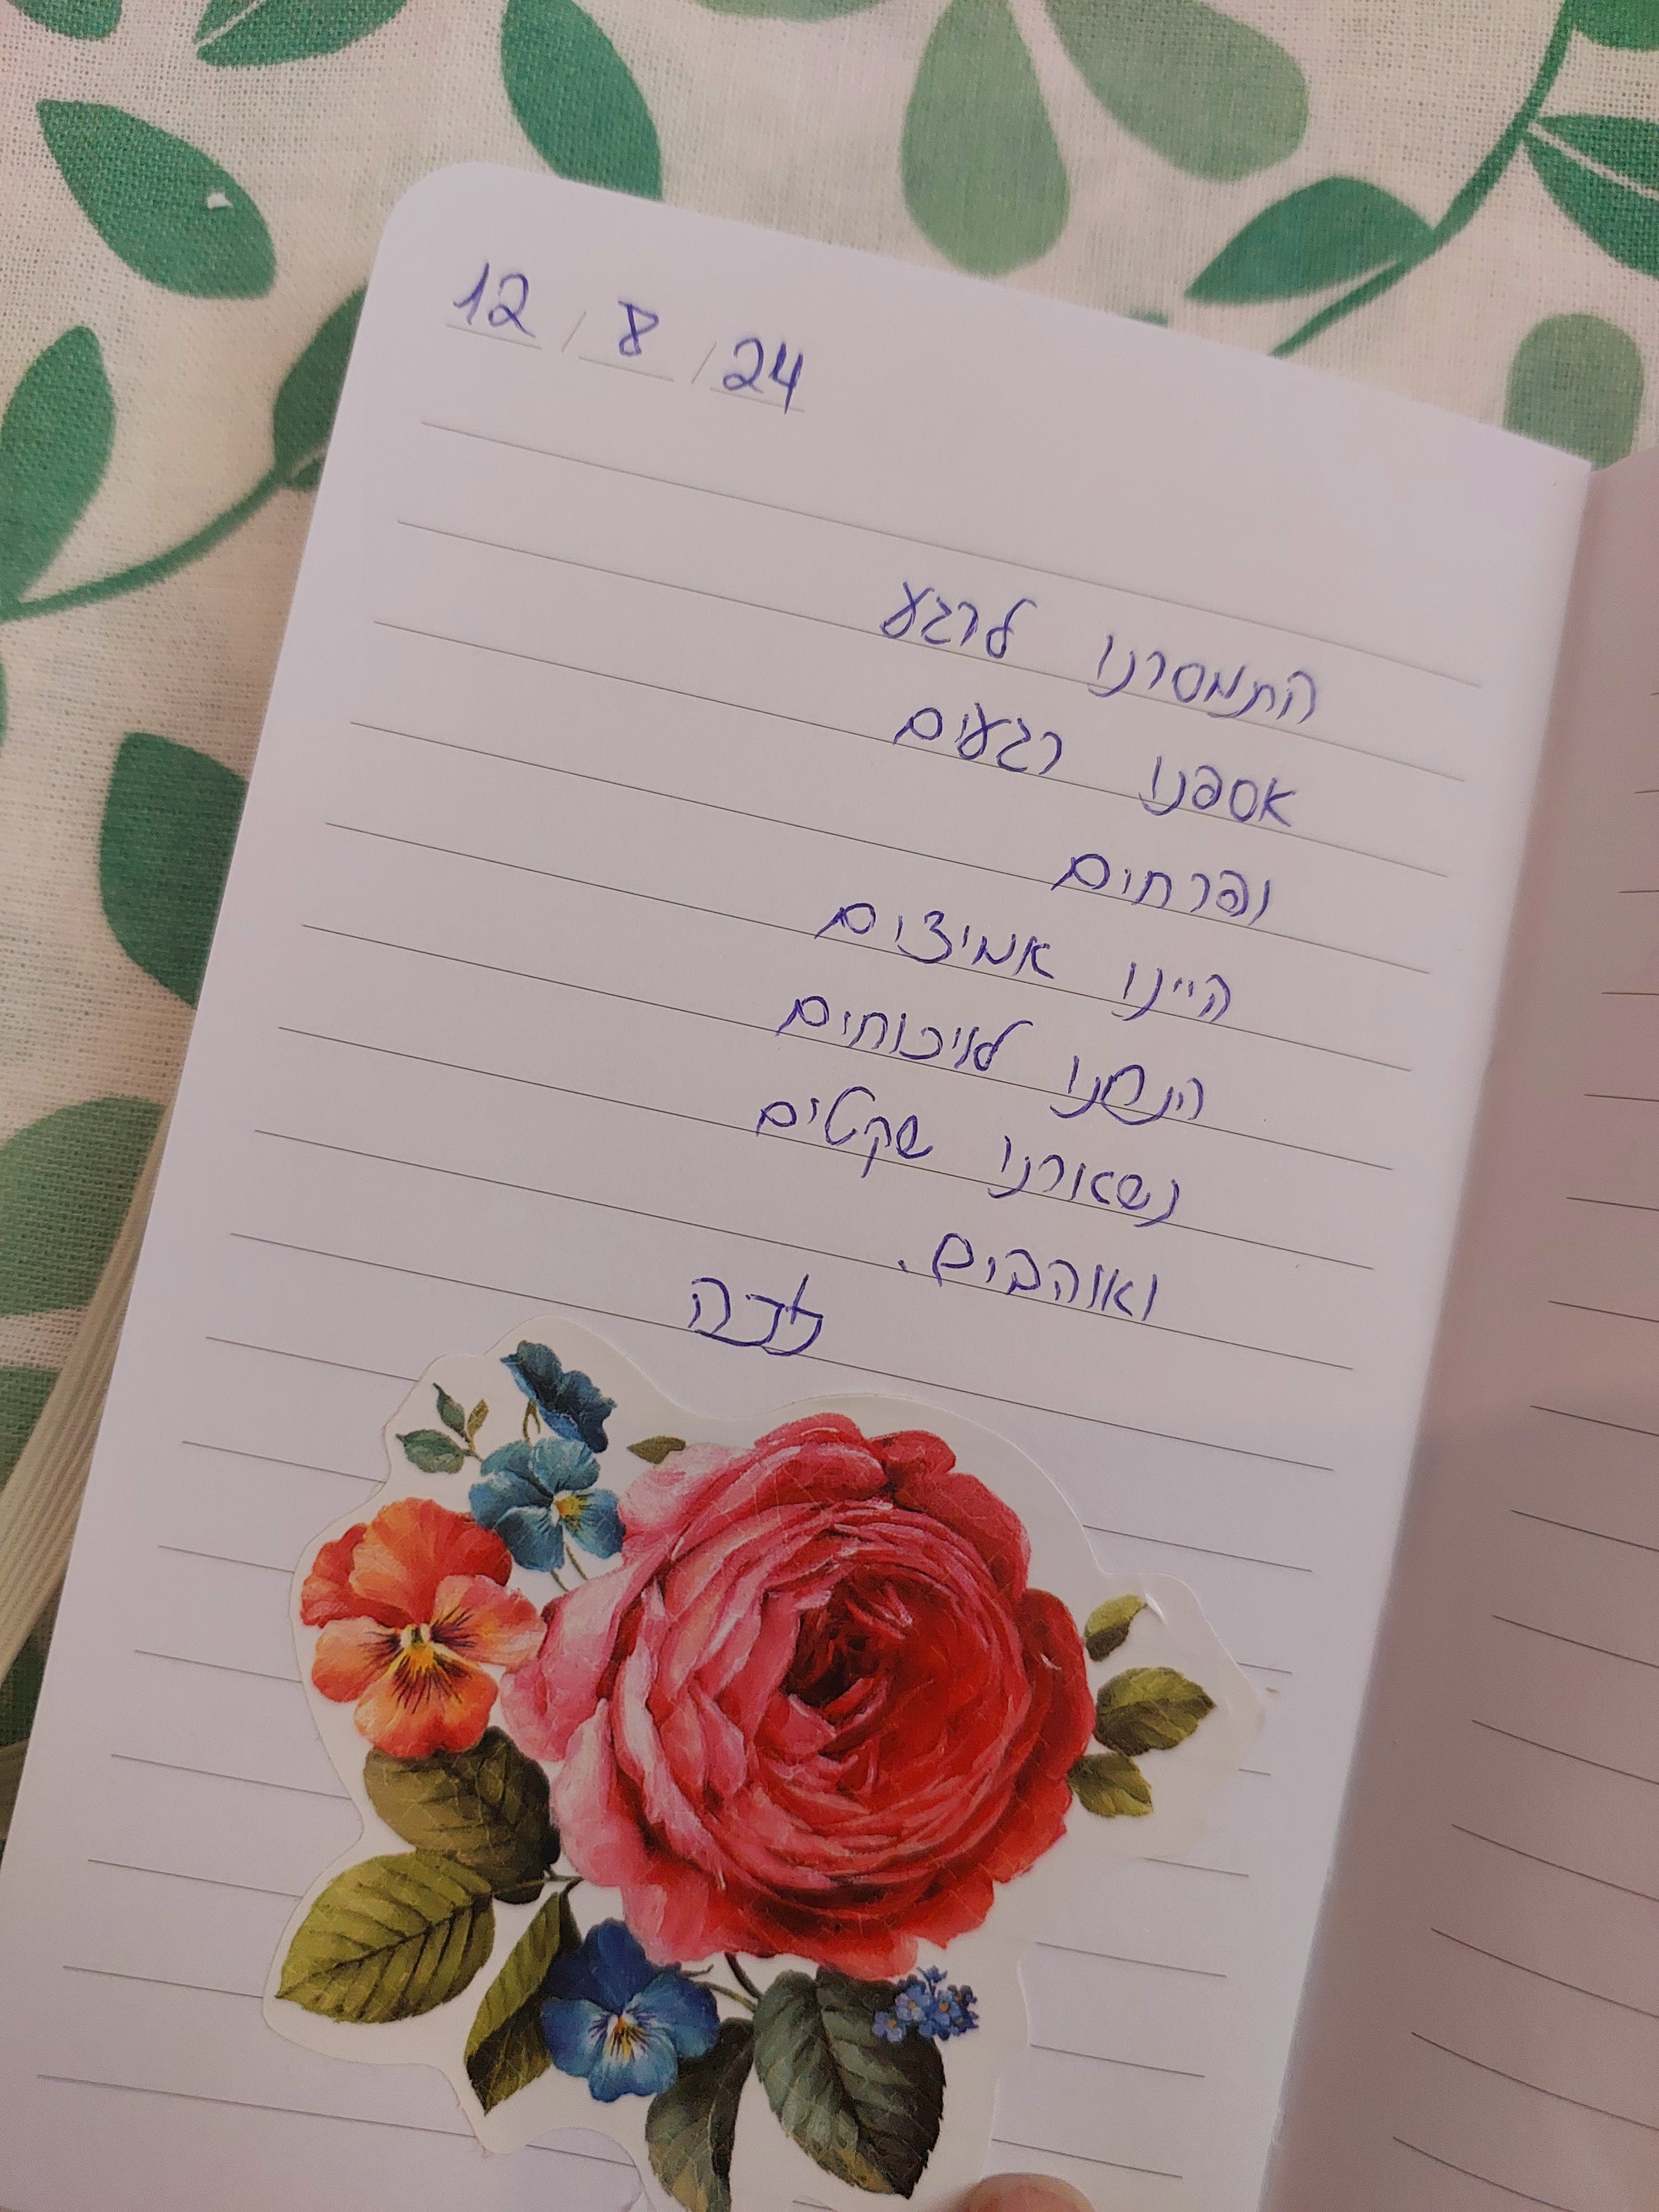 12 / 8 / 24
התמסרנו לרגע
אספנו רגעים
ופרחים
היינו אמיצים
הנחנו לויכוחים
נשארנו שקטים
ואוהבים.